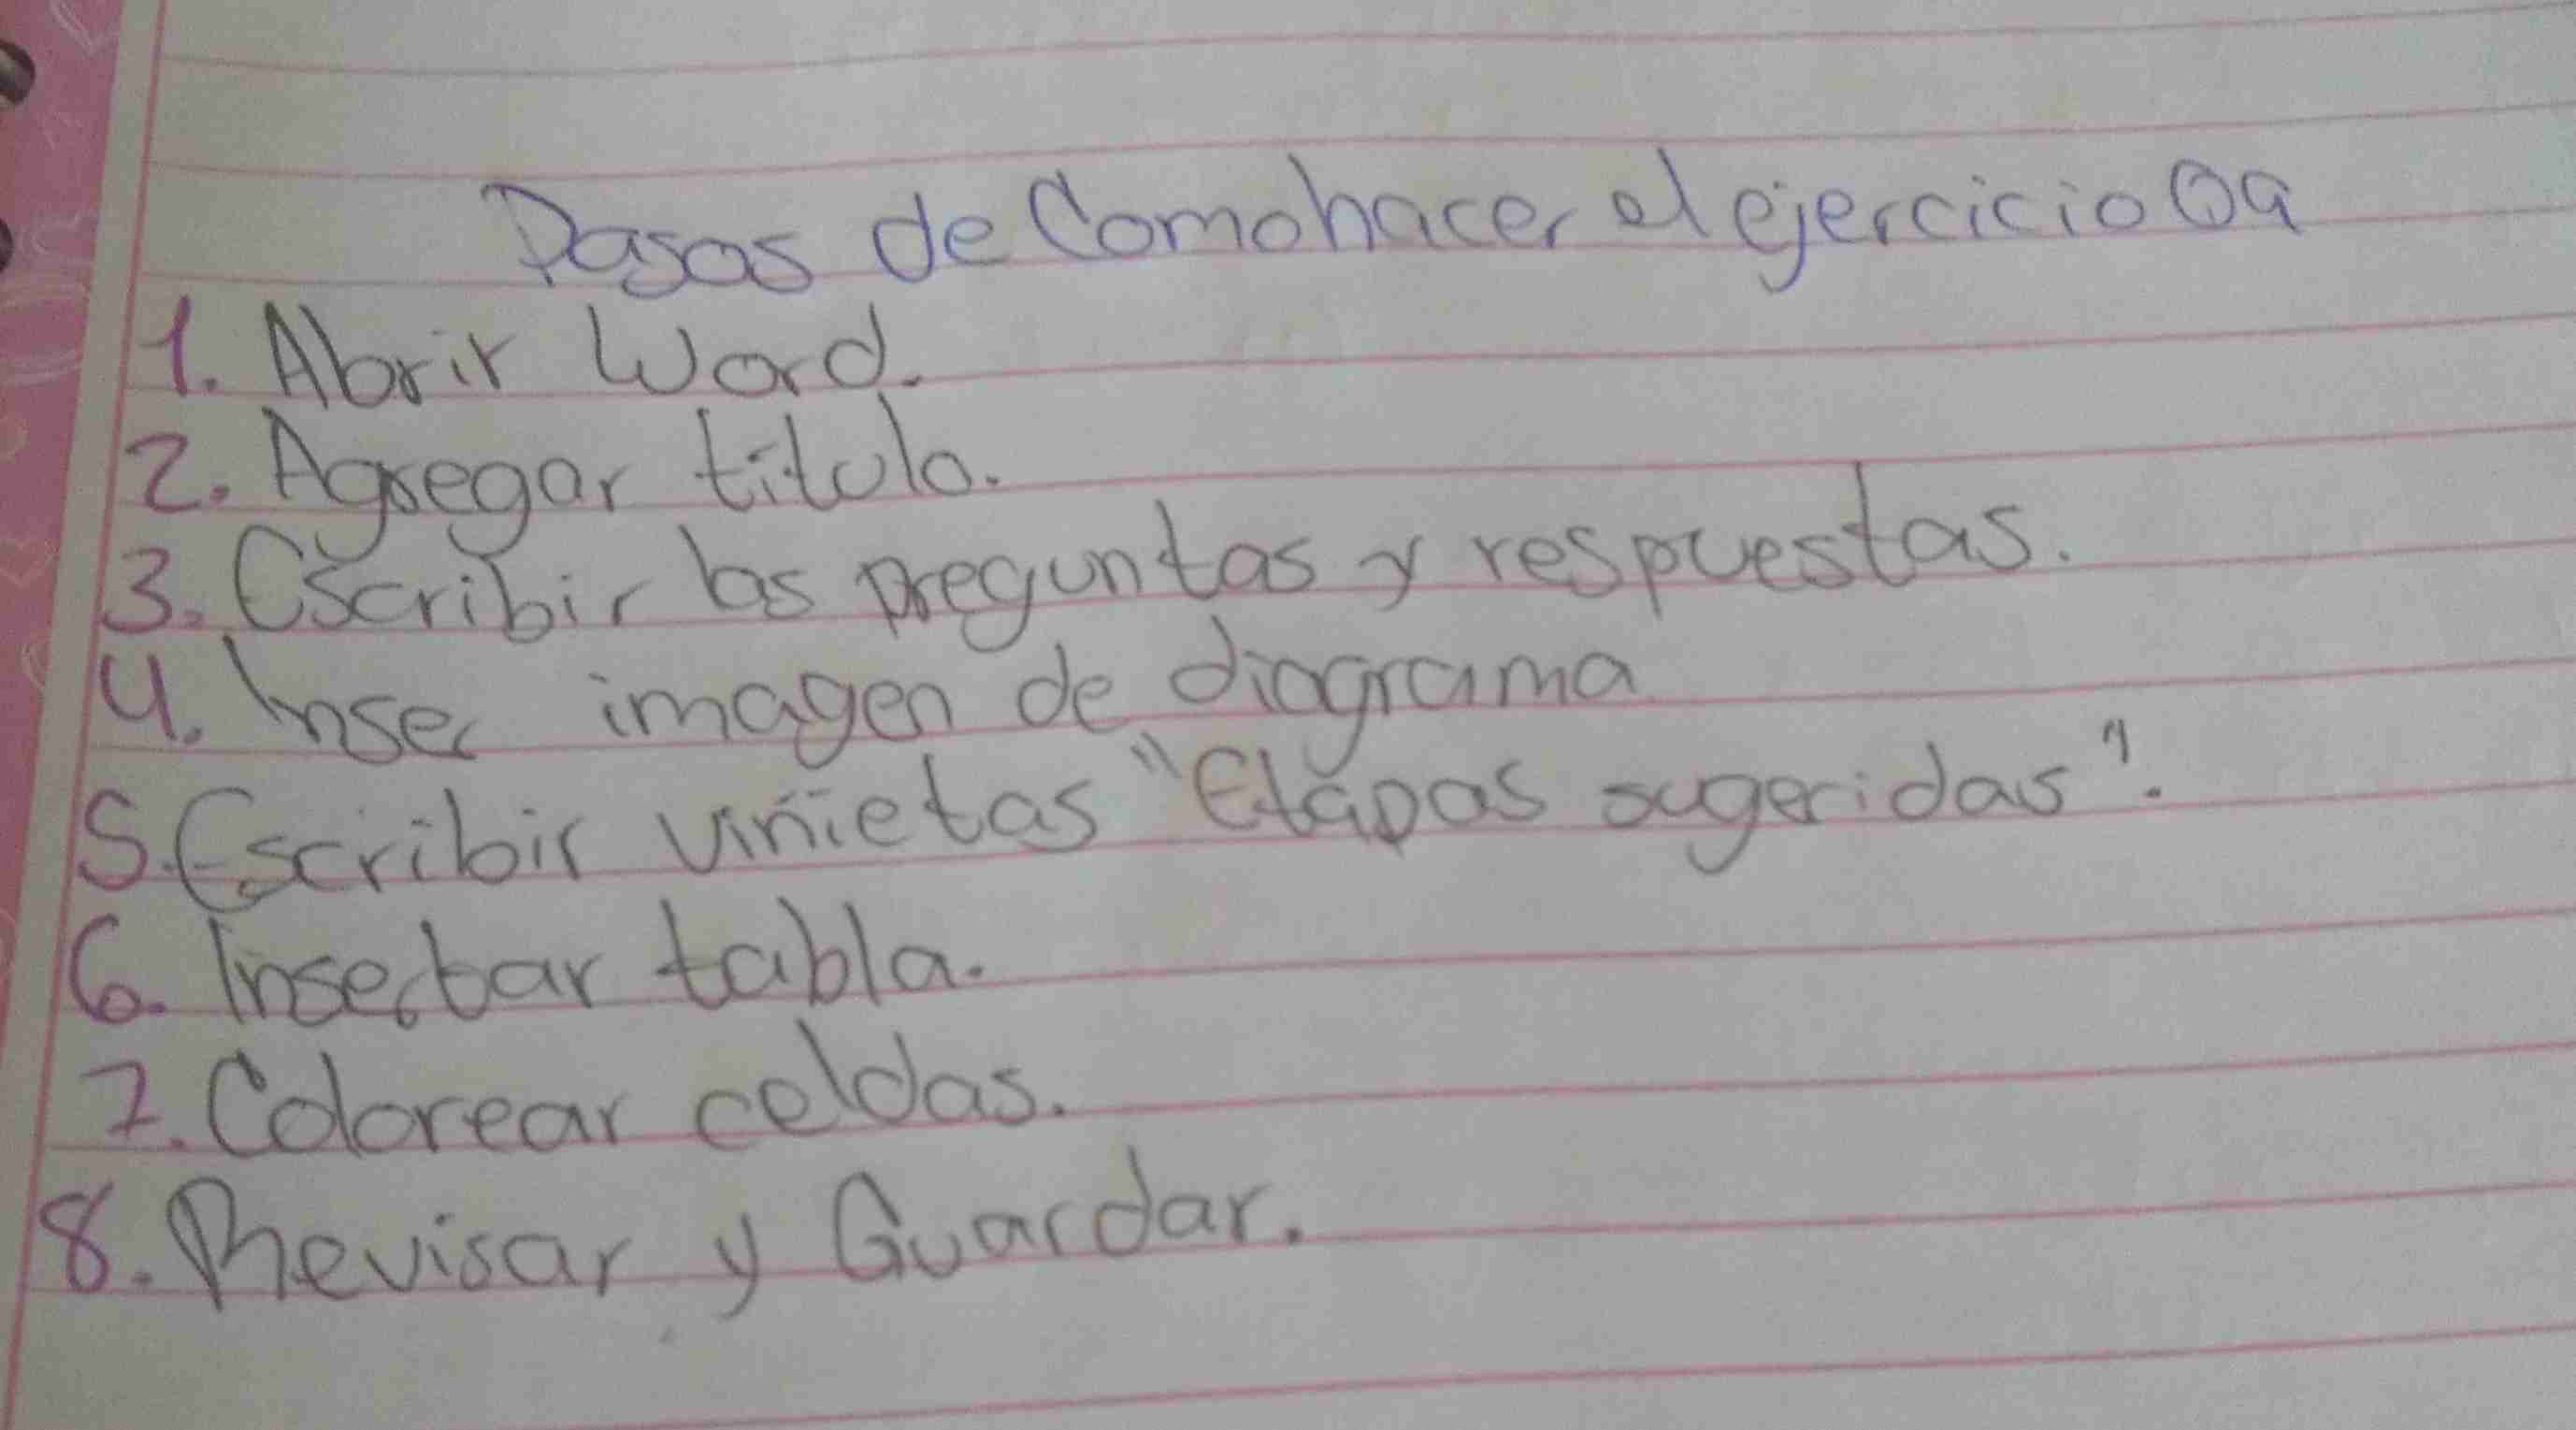 Pasos de Como hacer el ejercicio 09
1. Abrir Word.
2. Agregar titulo.
3. Escribir las preguntas y respuestas.
4. Inser imagen de diagrama
5. Escribir viñietas "Etapas sugeridas".
6. Insertar tabla.
7. Colorear celdas.
8. Revisar y Guardar.